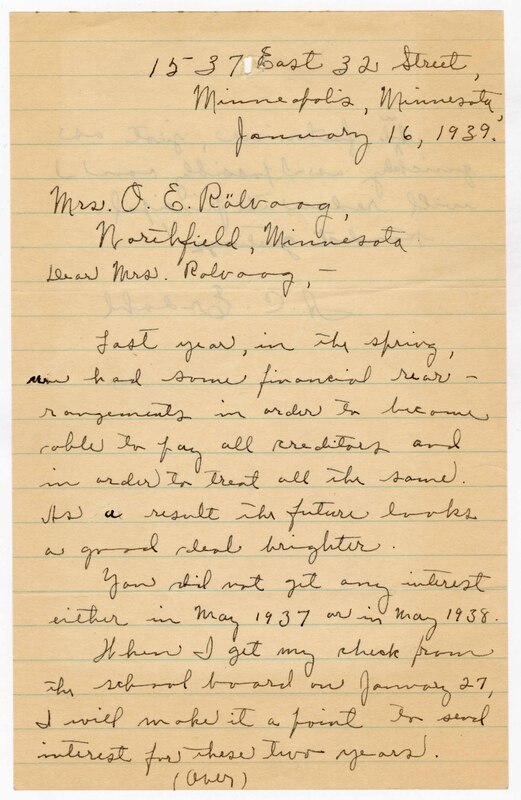 1537 East 32 Street,
Minneapolis, Minnesota,
January 16, 1939.
Mrs. O. E. Rölvaag,
Northfield, Minnesota.
Dear Mrs. Rölvaag, –
Last year, in the spring,
we had some financial rear-
rangements in order to become
able to pay all creditors and
in order to treat all the same.
As a result the future looks
a good deal brighter.
You did not get any interest
either in May 1937 or in May 1938.
When I get my check from
the school board on January 27,
I will make it a point to send
interest for these two years.
(Over)